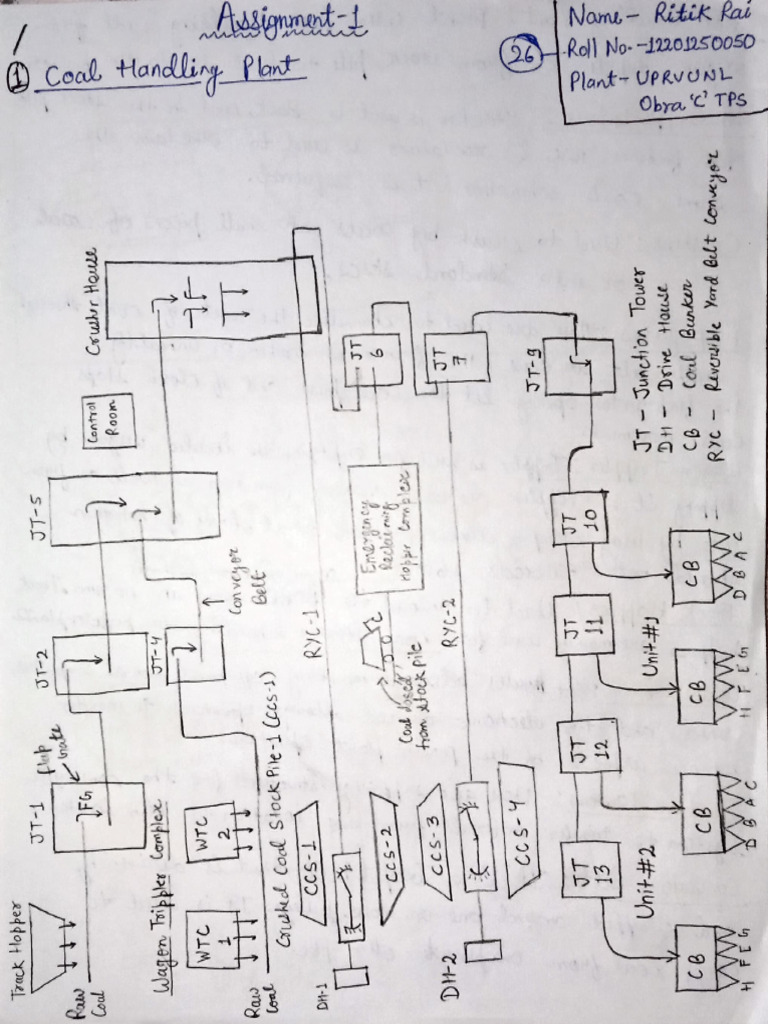 Assignment-1
Name- Ritik Rai
26
Roll No.-12201250050
Plant- UPRVUNL
Obra 'C' TPS
1 Coal Handling Plant
Track Hopper
Raw
Coal
JT-1
FG
Flap
Gate
JT-2
JT-5
Control
Room
Crusher House
Wagon Trippler Complex
WTC
1
WTC
2
Raw
Coal
JT-4
Conveyor
Belt
Crushed Coal Stock Pile-1 (CCS-1)
DH-1
CCS-1
RYC-1
JT
CCS-2
Coal
from Stock pile
Emergency
Reclaiming
Hopper Complex
CCS-3
DH-2
RYC-2
JT
7
CCS-4
JT-9
JT
13
JT
12
JT
11
JT
10
Unit#2
Unit#1
CB
H F E G
CB
D B A C
CB
H F E G
CB
D B A C
JT - Junction Tower
DH - Drive House
CB - Coal Bunker
RYC - Reversible Yard Belt Conveyor